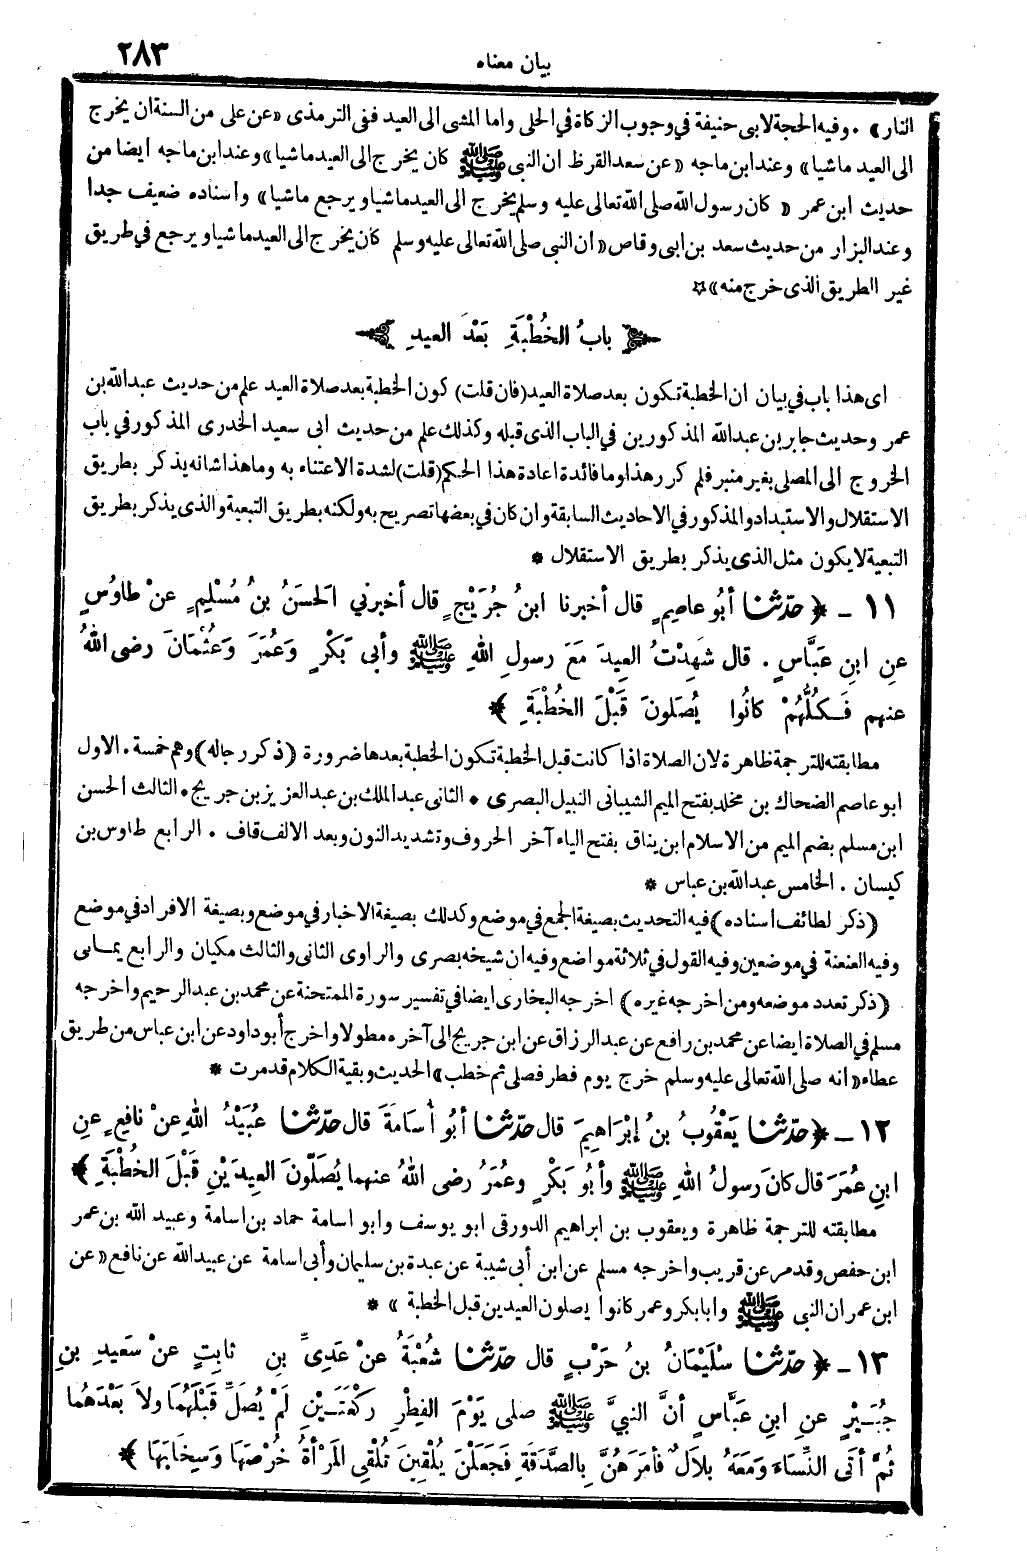 بيان معناه
٢٨٣
النار» . وفيه الحجة لابى حنيفة في وجوب الزكاة في الحلى واما المشى الى العيد ففى الترمذى «عن على من السنة ان يخرج
الى العيد ماشيا» وعند ابن ماجه «عن سعد القرظ ان النبى ﷺ كان يخرج الى العيد ماشيا» وعند ابن ماجه ايضا من
حديث ابن عمر « كان رسول الله صلى الله تعالى عليه وسلم يخرج الى العيد ماشيا ويرجع ماشيا» واسناده ضعيف جدا
وعند البزار من حديث سعد بن ابى وقاص «ان النبى صلى الله تعالى عليه وسلم كان يخرج الى العيد ماشيا ويرجع في طريق
غير الطريق الذى خرج منه» ✡
﴿ بابُ الخُطْبَةِ بَعْدَ العيدِ ﴾
اى هذا باب في بيان ان الخطبة تكون بعد صلاة العيد (فان قلت) كون الخطبة بعد صلاة العيد علم من حديث عبدالله بن
عمر وحديث جابر بن عبدالله المذكورين في الباب الذى قبله وكذلك علم من حديث ابى سعيد الخدرى المذكور في باب
الخروج الى المصلى بغير منبر فلم كرر هذا وما فائدة اعادة هذا الحكم (قلت) لشدة الاعتناء به وما هذا شانه يذكر بطريق
الاستقلال والاستبداد والمذكور في الاحاديث السابقة وان كان في بعضها تصريح به ولكنه بطريق التبعية والذى يذكر بطريق
التبعية لا يكون مثل الذى يذكر بطريق الاستقلال *
١١ ـ ﴿ حدّثنا أبُو عاصِمٍ قال أخبرنا ابنُ جُرَيْجٍ قال أخبرني الحَسَنُ بنُ مُسْلِمٍ عنْ طاوُسٍ
عنِ ابنِ عَبَّاسٍ . قال شَهِدْتُ العِيدَ مَعَ رسولِ اللهِ ﷺ وأبى بَكْرٍ وَعُمَرَ وَعُثْمَانَ رضى اللهُ
عنهم فَكُلُّهُمْ كانُوا يُصَلونَ قَبْلَ الخُطْبَةِ ﴾
مطابقته للترجمة ظاهرة لان الصلاة اذا كانت قبل الخطبة تكون الخطبة بعدها ضرورة (ذكر رجاله) وهم خمسة . الاول
ابو عاصم الضحاك بن مخلد بفتح الميم الشيبانى النبيل البصرى . الثانى عبد الملك بن عبد العزيز بن جريج . الثالث الحسن
ابن مسلم بضم الميم من الاسلام ابن يناق بفتح الياء آخر الحروف وتشديد النون وبعد الالف قاف . الرابع طاوس بن
كيسان . الخامس عبدالله بن عباس *
(ذكر لطائف اسناده) فيه التحديث بصيغة الجمع في موضع وكذلك بصيغة الاخبار في موضع وبصيغة الافراد في موضع
وفيه العنعنة في موضعين وفيه القول في ثلاثة مواضع وفيه ان شيخه بصرى والراوى الثانى والثالث مكيان والرابع يمانى
(ذكر تعدد موضعه ومن اخرجه غيره) اخرجه البخارى ايضا في تفسير سورة الممتحنة عن محمد بن عبد الرحيم واخرجه
مسلم في الصلاة ايضا عن محمد بن رافع عن عبد الرزاق عن ابن جريج الى آخره مطولا واخرج أبو داود عن ابن عباس من طريق
عطاء «انه صلى الله تعالى عليه وسلم خرج يوم فطر فصلى ثم خطب» الحديث وبقية الكلام قد مرت *
١٢ ـ ﴿ حدّثنا يَعْقُوبُ بنُ إبْرَاهِيمَ قال حدّثنا أبُو أُسَامَةَ قال حدّثنا عُبَيْدُ اللهِ عنْ نافِعٍ عنِ
ابنِ عُمَرَ قال كانَ رسولُ اللهِ ﷺ وأبُو بَكْرٍ وعُمَرُ رضى اللهُ عنهما يُصَلّونَ العِيدَيْنِ قَبْلَ الخُطْبَةِ ﴾
مطابقته للترجمة ظاهرة ويعقوب بن ابراهيم الدورقى ابو يوسف وابو اسامة حماد بن اسامة وعبيد الله بن عمر
ابن حفص وقد مر عن قريب واخرجه مسلم عن ابن أبى شيبة عن عبدة بن سليمان وأبى اسامة عن عبيدالله عن نافع «عن
ابن عمر ان النبى ﷺ وابا بكر وعمر كانوا يصلون العيدين قبل الخطبة » *
١٣ ـ ﴿ حدّثنا سُلَيْمَانُ بنُ حَرْبٍ قال حدّثنا شُعْبَةُ عنْ عَدِىِّ بنِ ثابِتٍ عنْ سَعيدِ بنِ
جُبَيْرٍ عنِ ابنِ عَبَّاسٍ أنَّ النبيَّ ﷺ صلى يَوْمَ الفِطْرِ رَكْعَتَيْنِ لَمْ يُصَلِّ قَبْلَهُمَا ولاَ بَعْدَهُما
ثُمَّ أتَى النِّسَاءَ وَمَعَهُ بِلالٌ فأمَرَهُنَّ بِالصَّدَقَةِ فَجَعَلْنَ يُلْقِينَ تُلْقِى المَرْأةُ خُرْصَهَا وَسِخَابَهَا ﴾